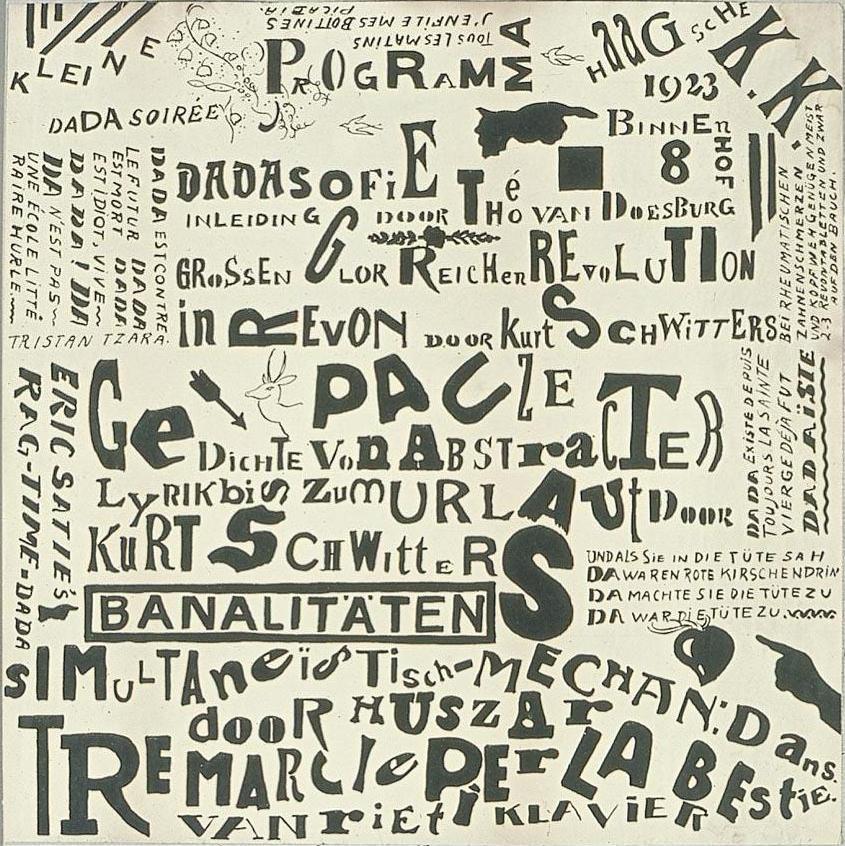 TOUS LES MATINS
J'ENFILE MES BOTTINES
PICABIA.
PROGRAMMA
KLEINE
DADA SOIRÉE
HAAGSCHE K.K.
1923
BINNENHOF 8
DADASOFIE Té
INLEIDING DOOR THÉO VAN DOESBURG
GROSSEN GLORREICHEN REVOLUTION
in REVON DOOR Kurt SCHWITTERS
DADA EST CONTRE
LE FUTUR DADA
EST MORT DADA
EST IDIOT, VIVE
DADA! DA
DA N'EST PAS
UNE ÉCOLE LITTÉ
RAIRE HURLE
TRISTAN TZARA.
BEI RHEUMATISCHEN
ZAHNENSCHMERZEN
UND KOPFWEH GENÜGEN MEIST
2-3 REVONTABLETTEN UND ZWAR
AUF DEN BAUCH.
PAUZE
GeDICHTE VoN ABSTracTER
LyRIK biS ZuM URLAUt DOOR
KuRT SCHWittERS
ERIC SATIE'S
RAG-TIME=DADA
DADA EXISTE DEPUIS
TOUJOURS LA SAINTE
VIERGE DÉJÀ FUT
DADAÏSTE
BANALITÄTEN
UND ALS SIE IN DIE TÜTE SAH
DA WAREN ROTE KIRSCHEN DRIN
DA MACHTE SIE DIE TÜTE ZU
DA WAR DIE TÜTE ZU.
SIMULTANeïSTisch-MECHAN: Dans.
dooR HUSZAr
TREMARCIe PEr LA BESTie.
VAN RiEti KLAVIER